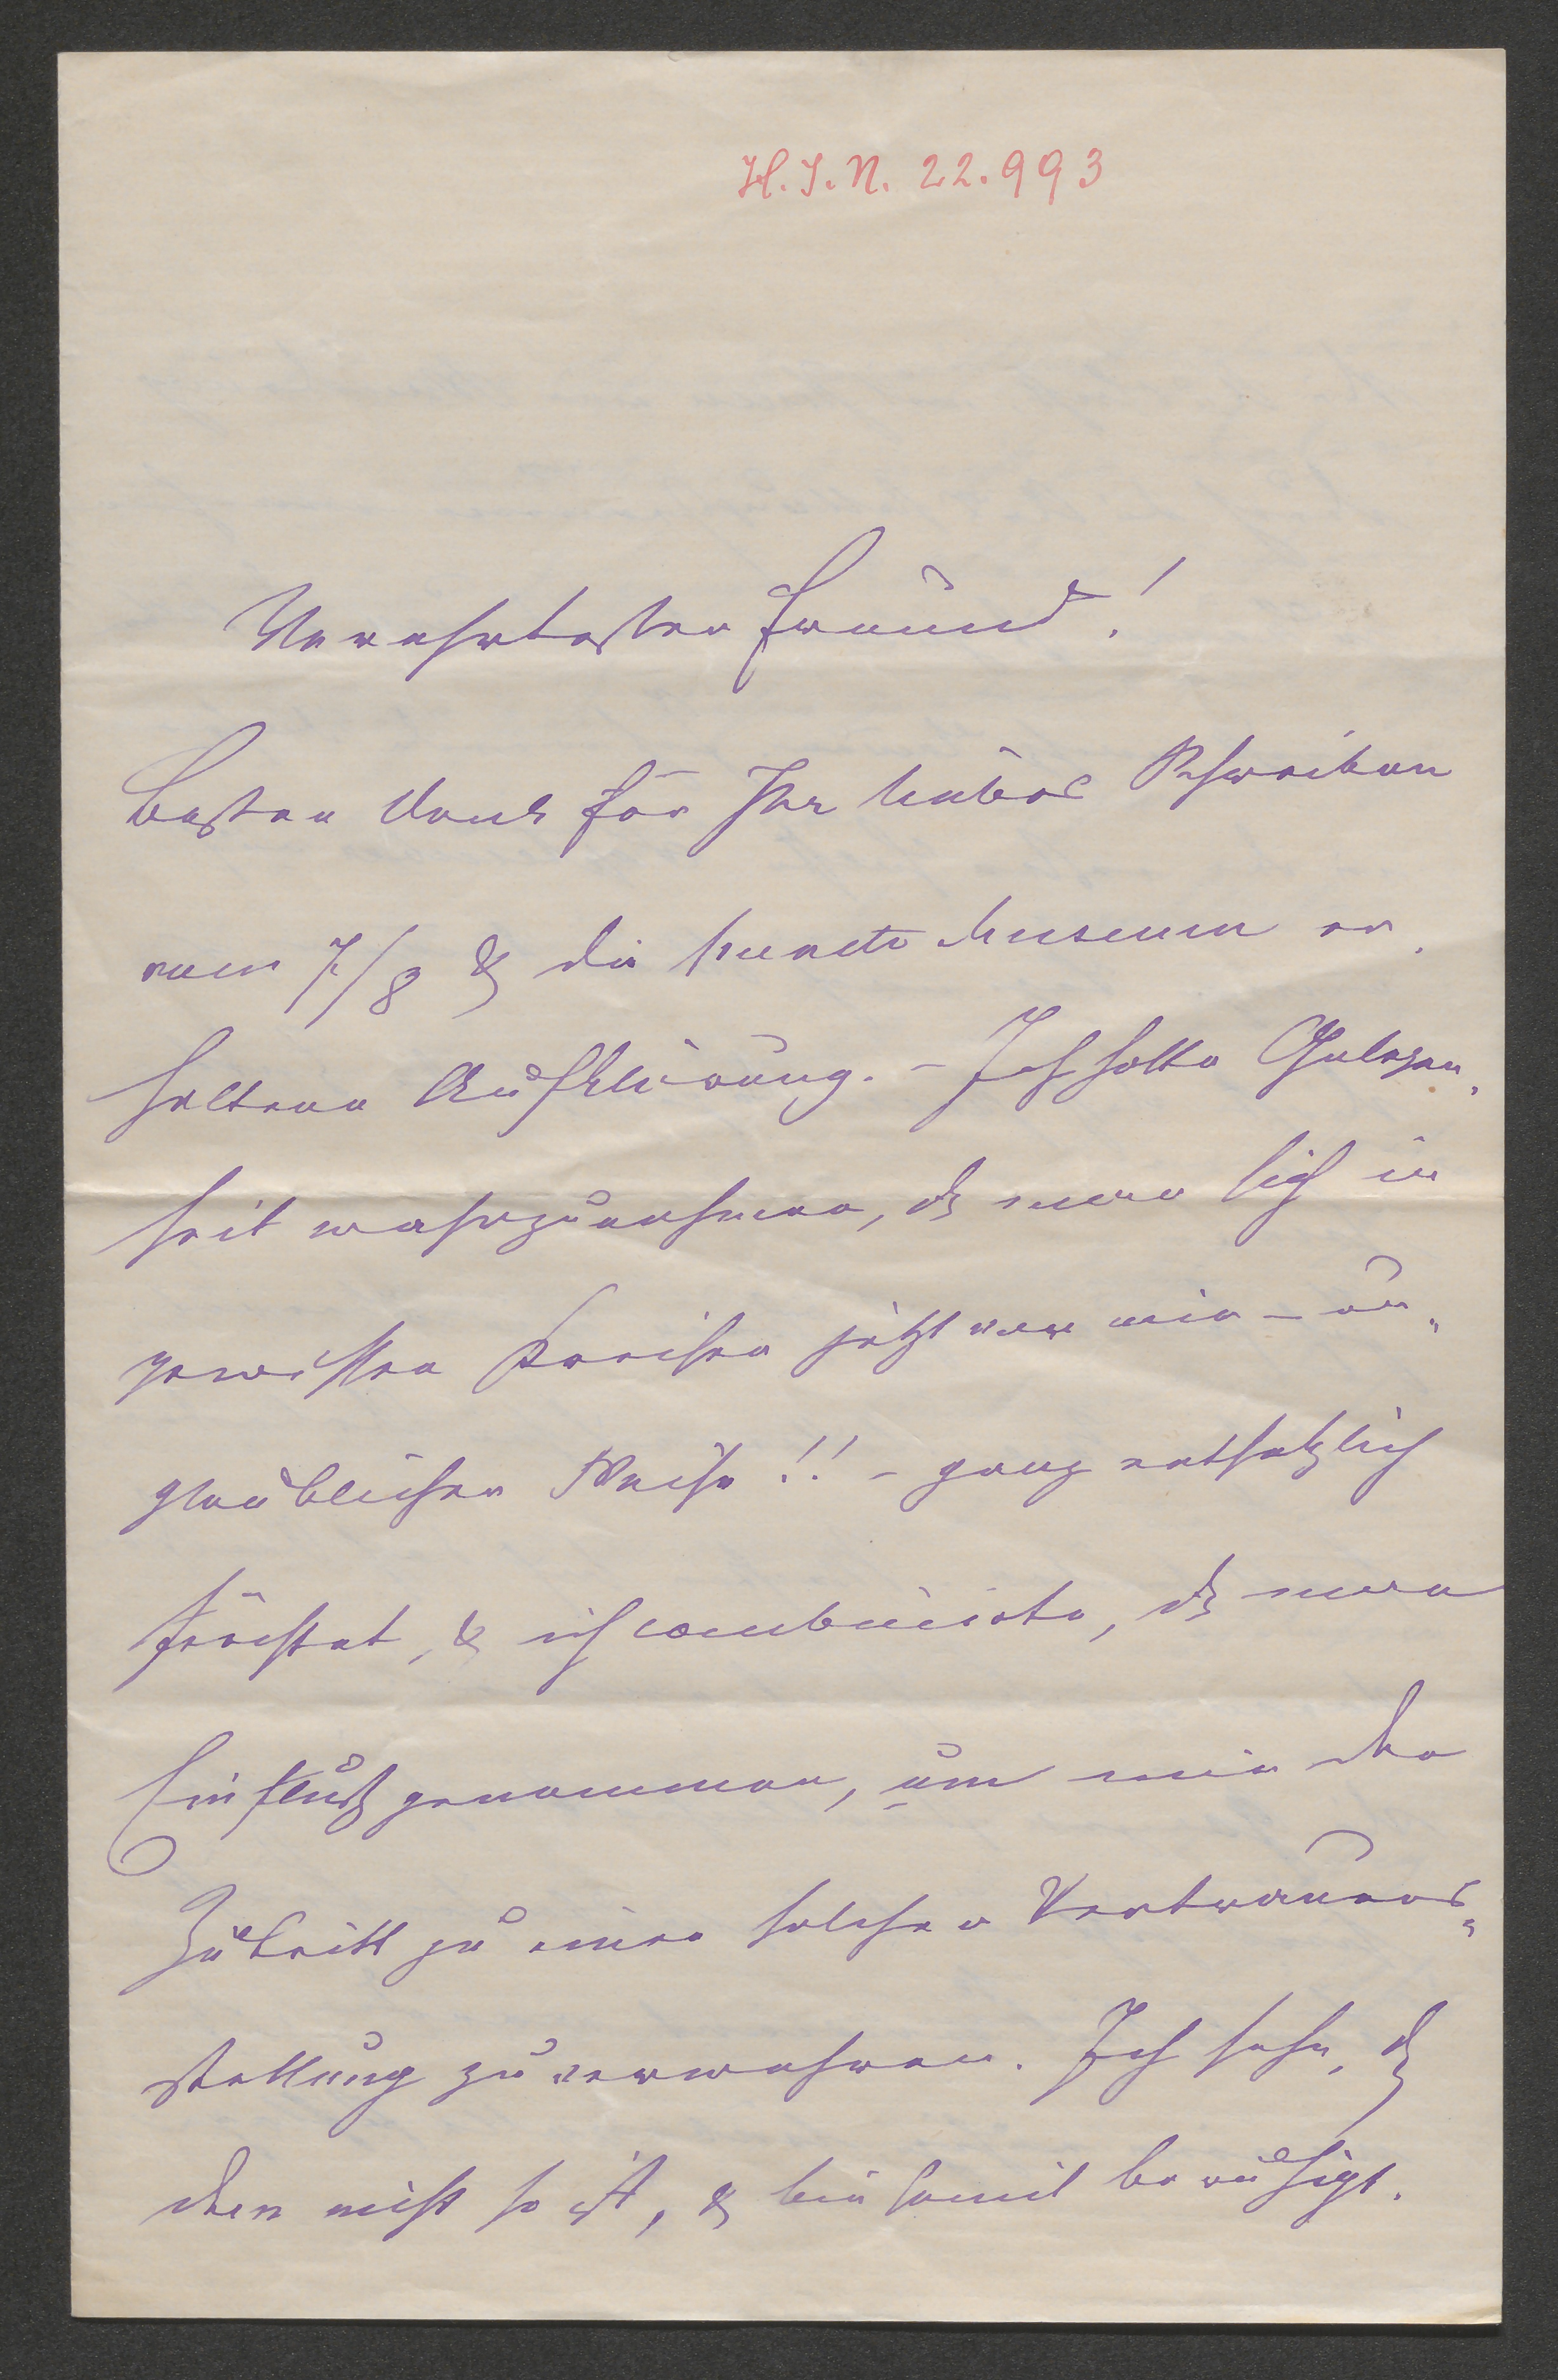 H.I.N. 22.993
Verehrtester Freund!
Besten Dank für Ihr liebes Schreiben
vom 7/8 & die puncto Museum er-
haltene Aufklärung. – Ich hatte Gelegen-
heit wahrzunehmen, dß man sich in
gewissen Kreisen jetzt vor mir – un-
glaublicher Weise!! – ganz entsetzlich
fürchtet, & ich combinirte, dß man
Einfluß genommen, um mir den
Zutritt zu einer solchen Vertrauens-
stellung zu verwehren. Ich sehe, dß
dem nicht so ist, & bin somit beruhigt.